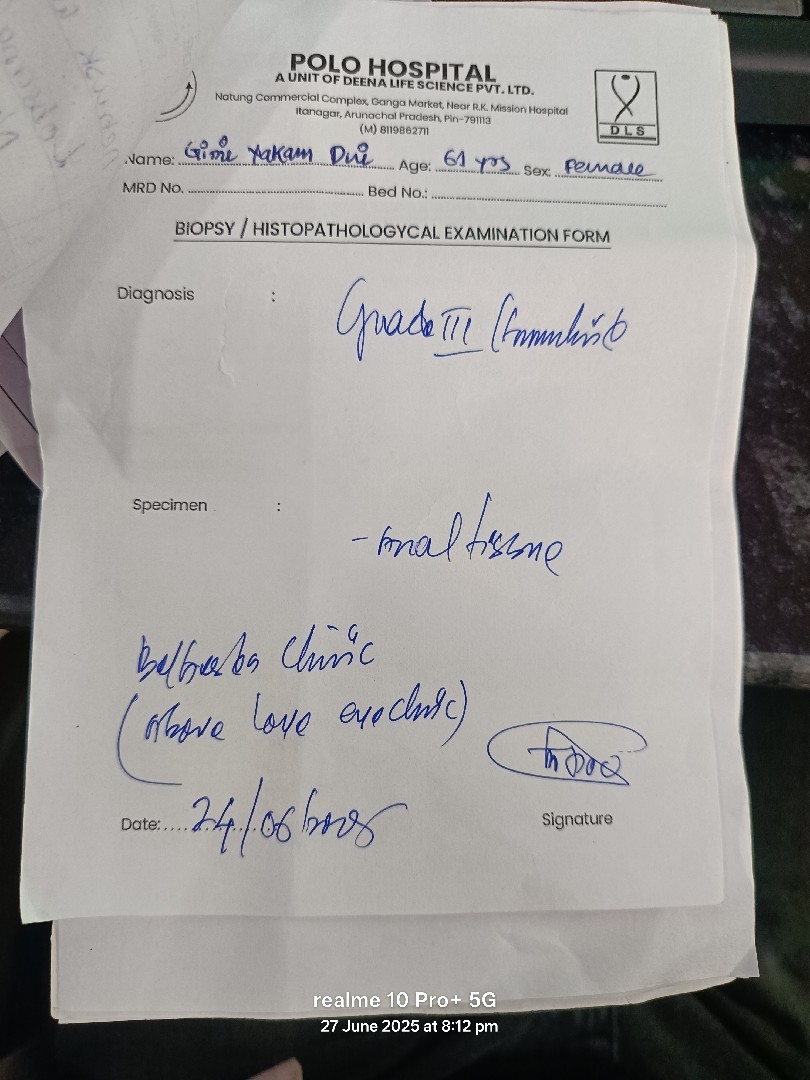 POLO HOSPITAL
A UNIT OF DEENA LIFE SCIENCE PVT. LTD.
Natung Commercial Complex, Ganga Market, Near R.K. Mission Hospital
Itanagar, Arunachal Pradesh, Pin-791113
(M) 8119862711
DLS
Name: Gimi Yakam Dui Age: 61 yrs Sex: Female
MRD No. Bed No.:
BIOPSY / HISTOPATHOLOGYCAL EXAMINATION FORM
Diagnosis :
Grade III
Specimen :
- anal tissue
Clinic
(Above Love eye clinic)
Date: 24/06/2025
Signature
realme 10 Pro+ 5G
27 June 2025 at 8:12 pm